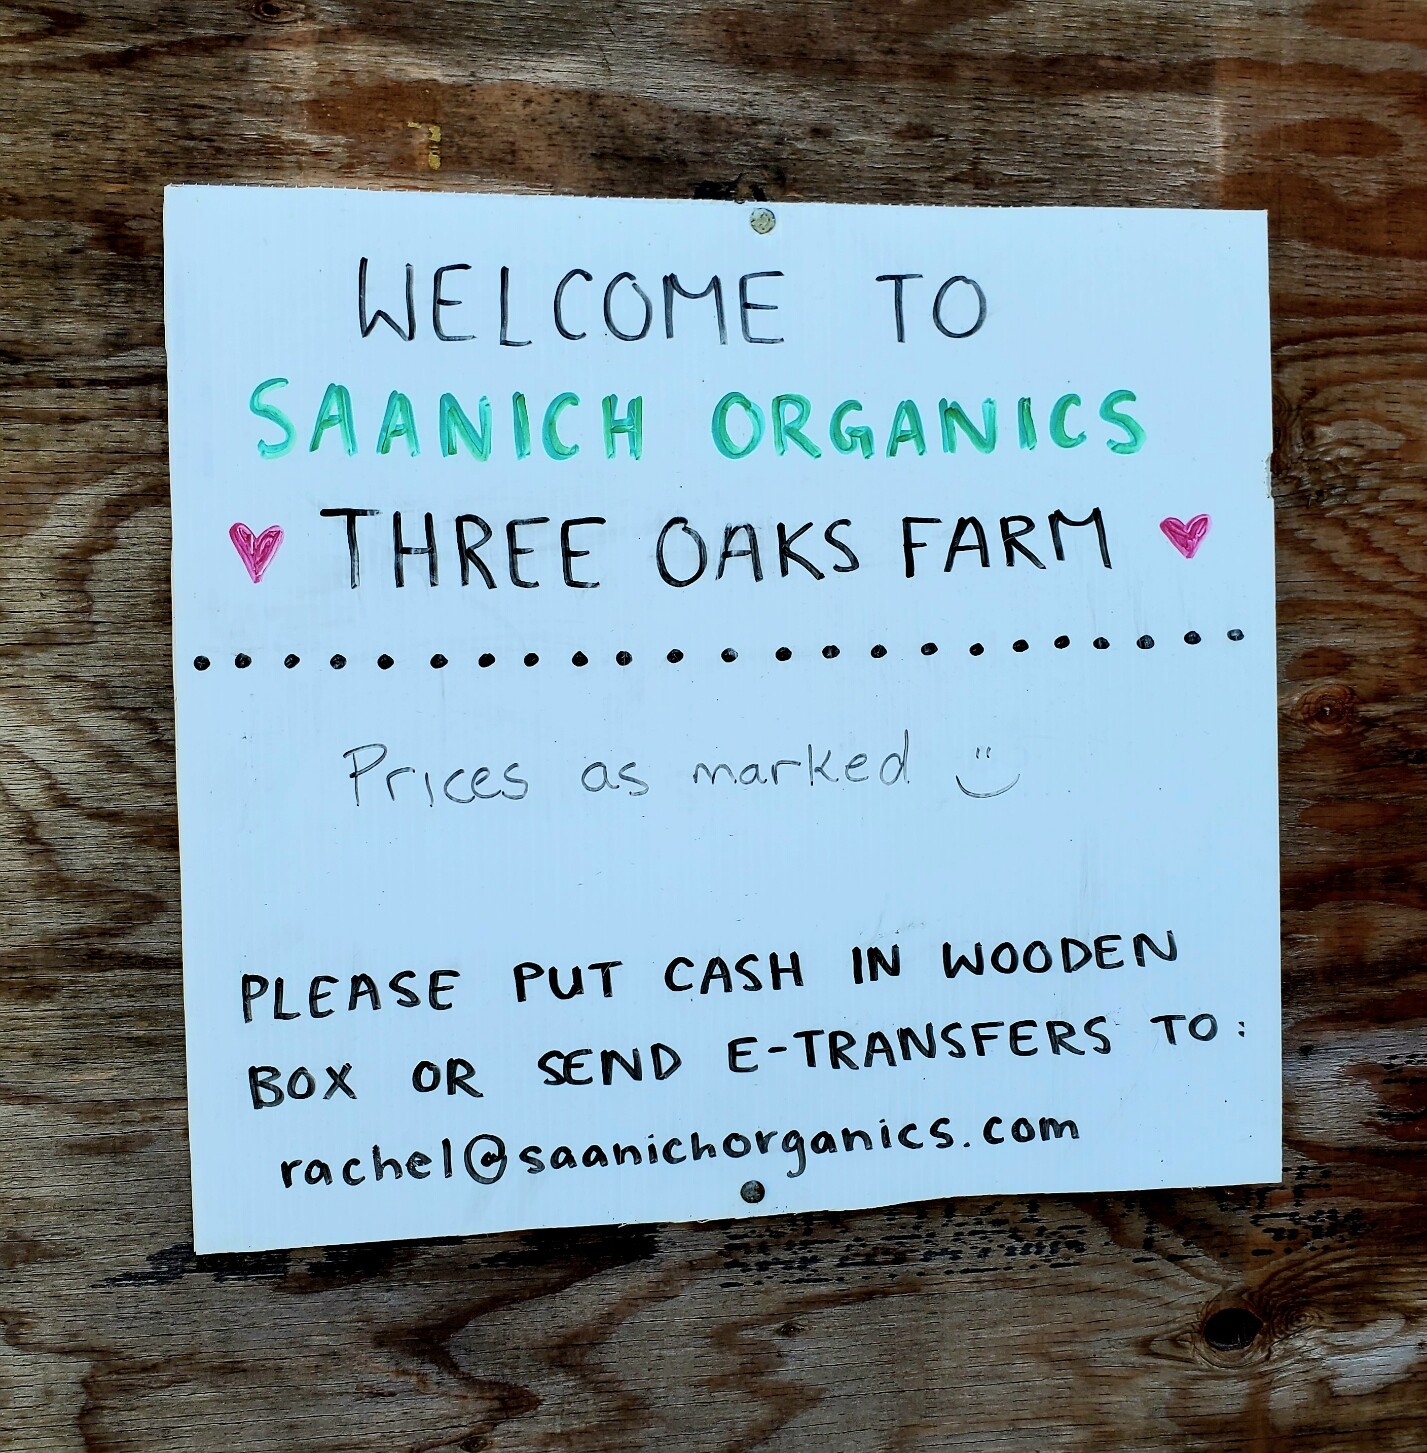 WELCOME TO
SAANICH ORGANICS
THREE OAKS FARM
Prices as marked
PLEASE PUT CASH IN WOODEN
BOX OR SEND E-TRANSFERS TO:
rachel@saanichorganics.com